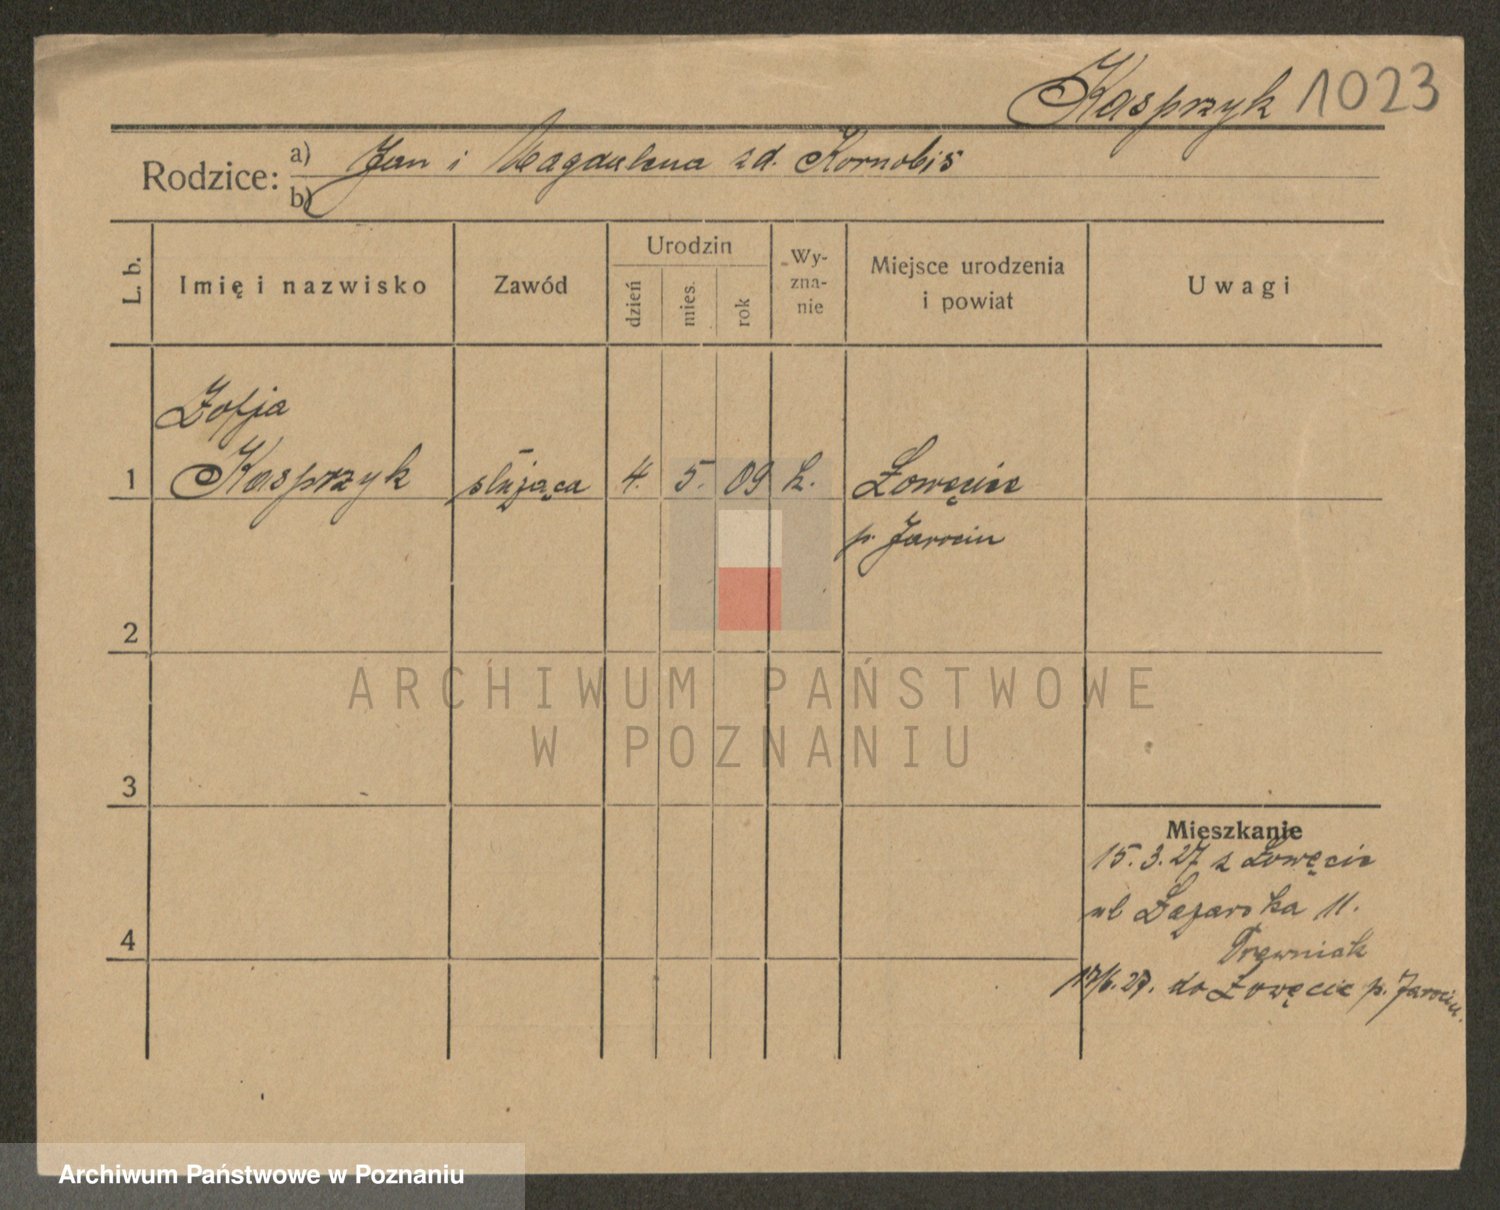 Kasprzyk 1023
Rodzice: a) Jan i Magdalena zd. Kornobis
b)
L. b.
Imię i nazwisko
Zawód
Urodzin
dzień
mies.
rok
Wy-
zna-
nie
Miejsce urodzenia
i powiat
Uwagi
Zofja
1 Kasprzyk służąca 4. 5. 09 k. Łowęcice
p. Jarocin
2
ARCHIWUM PAŃSTWOWE
W POZNANIU
3
Mieszkanie
15.3.27 z Łowęcic
ul Łazarska 11.
4
17/6.27. do Łowęcic p. Jarocin.
Archiwum Państwowe w Poznaniu